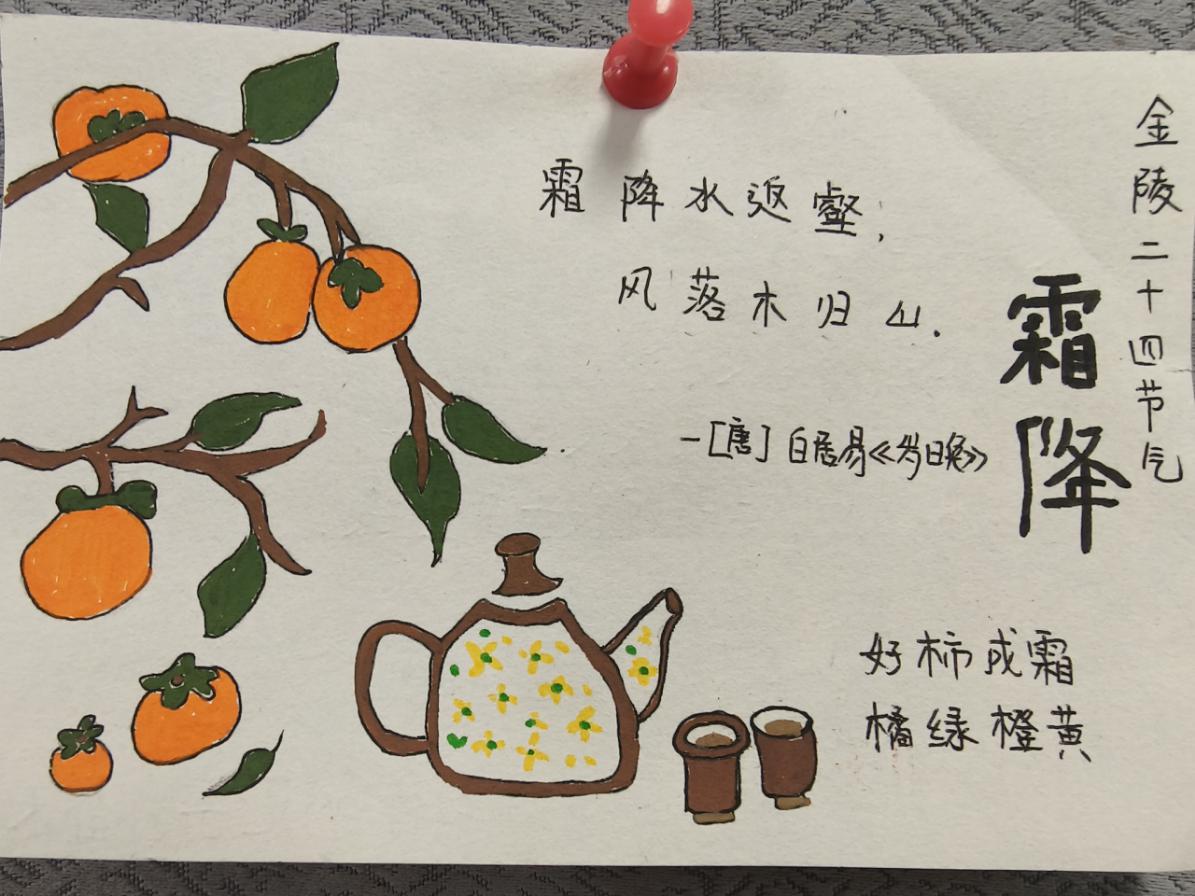 金陵二十四节气
霜降
霜降水返壑，
风落木归山.
-[唐]白居易《岁晚》
好柿成霜
橘绿橙黄